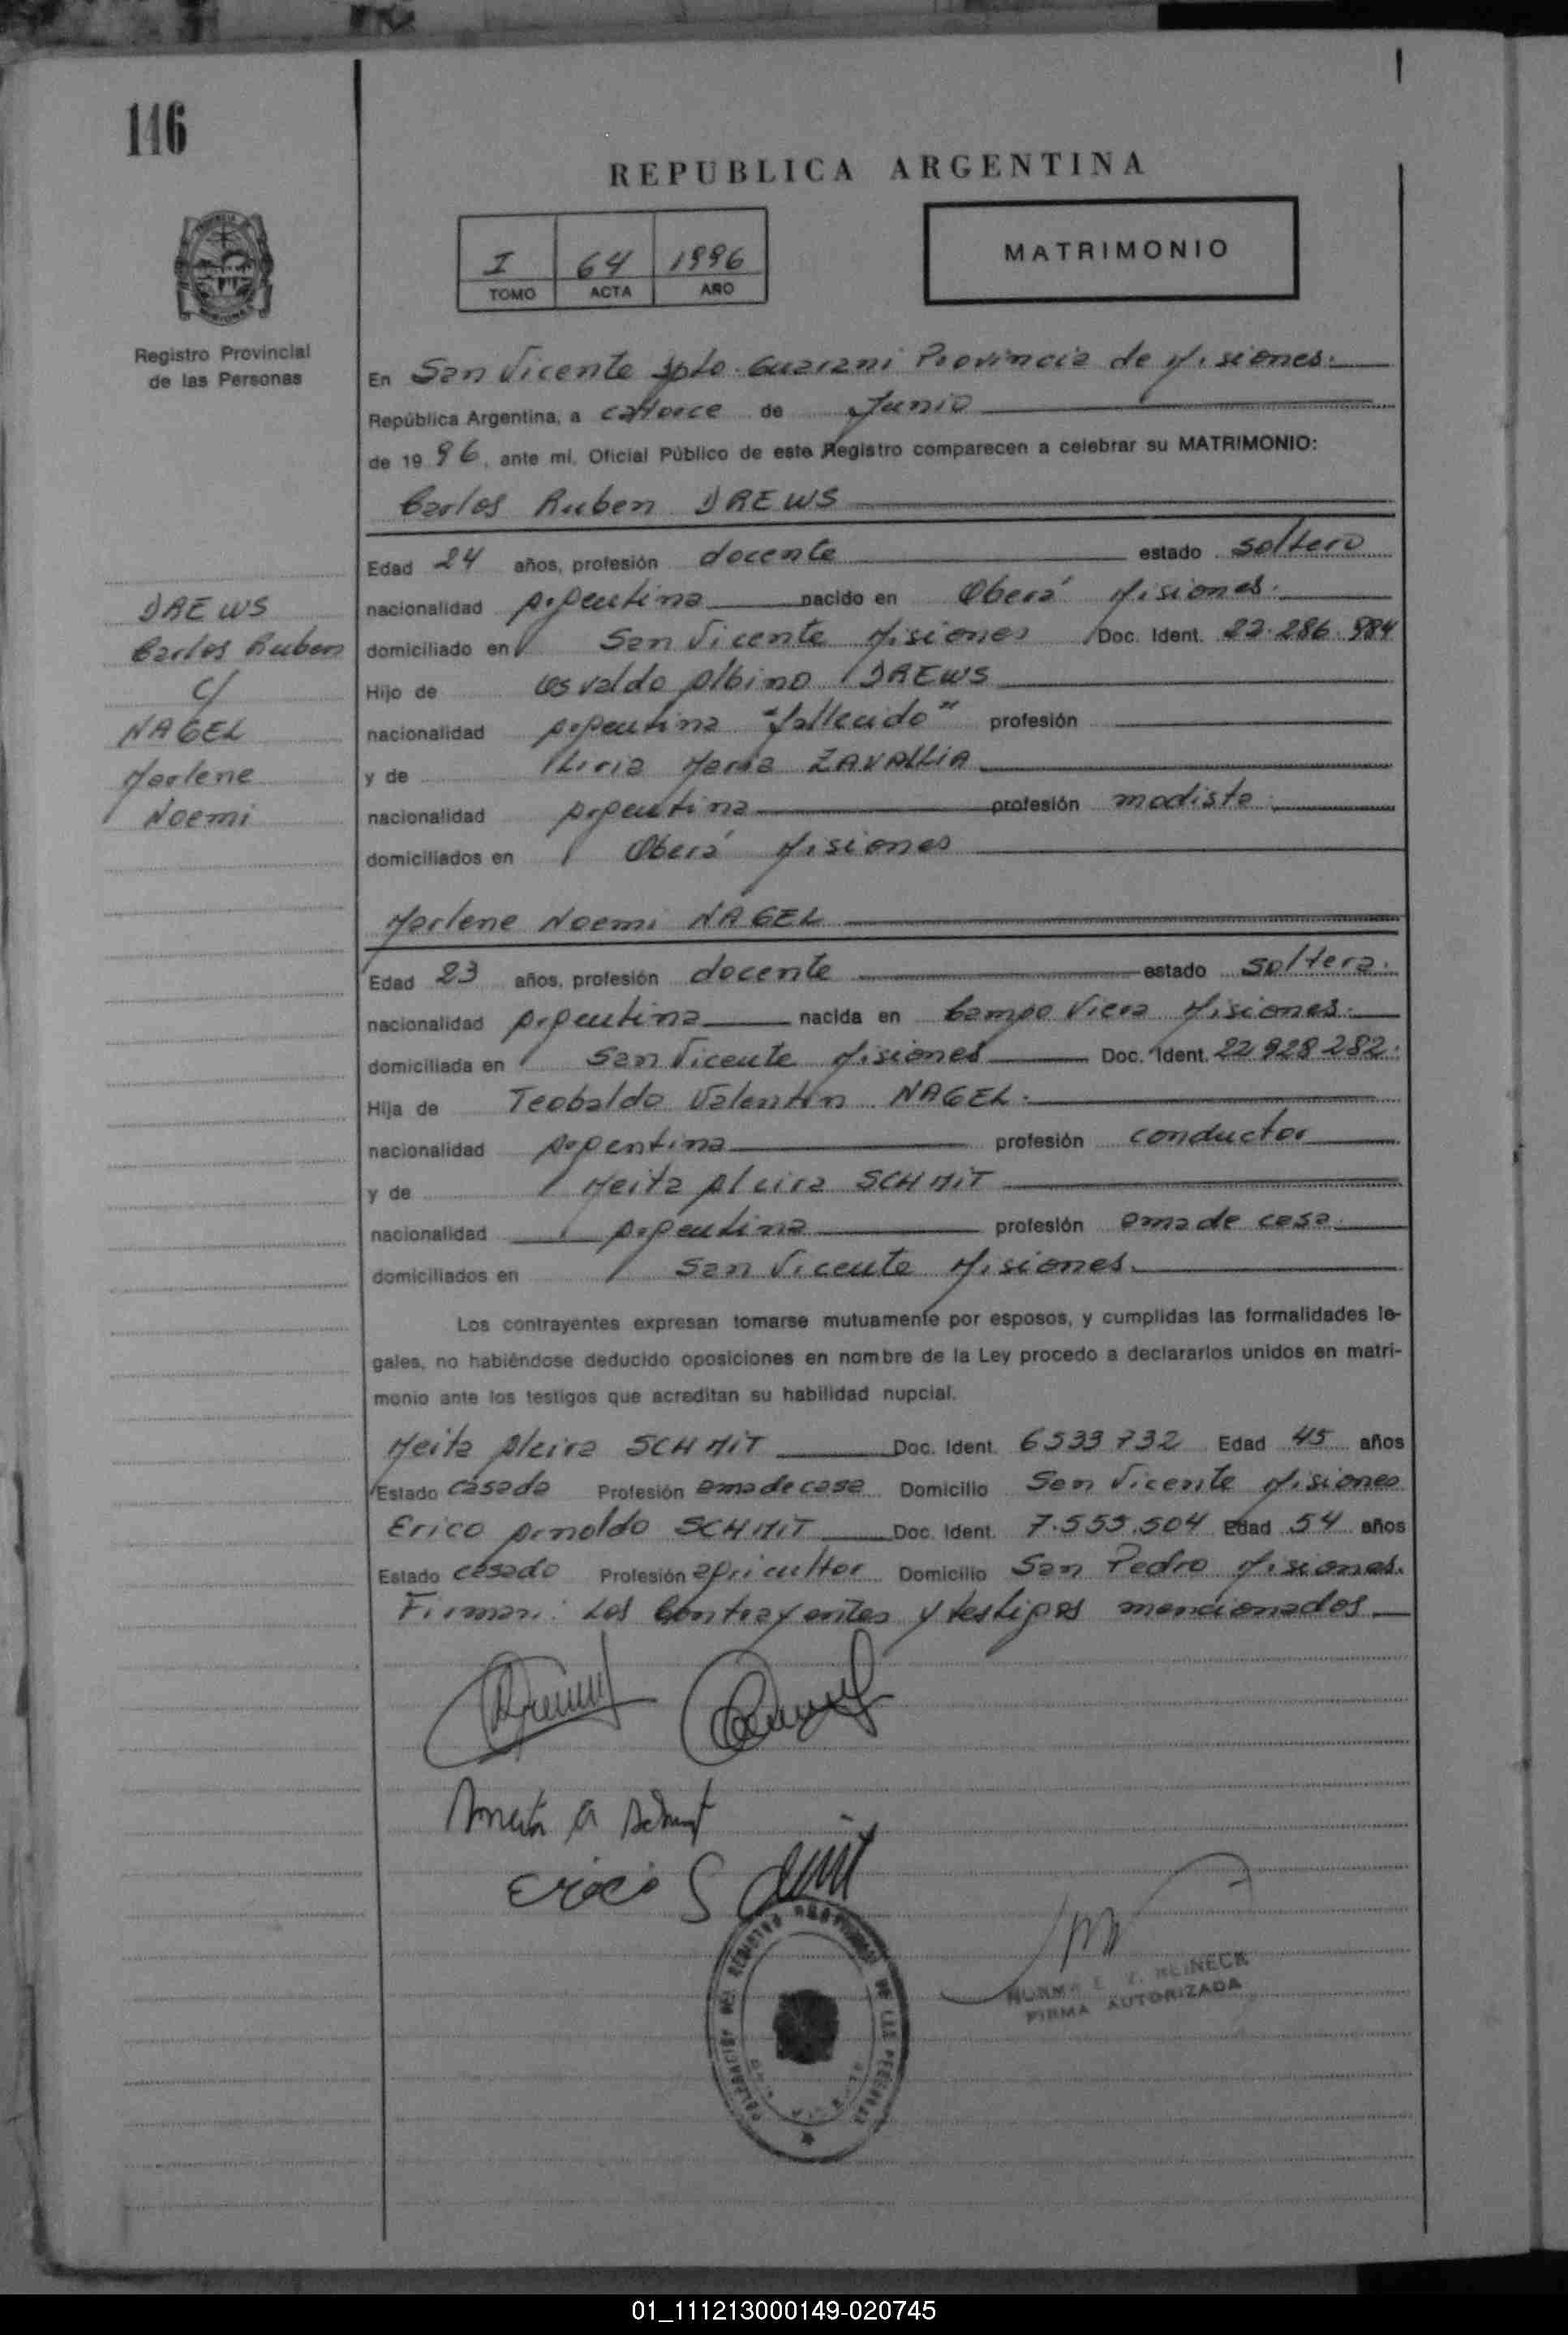 146
REPUBLICA ARGENTINA
I 64 1996
TOMO ACTA AÑO
MATRIMONIO
Registro Provincial
de las Personas
En San Vicente Dpto. Guarani Provincia de Misiones.
República Argentina, a catorce de Junio
de 19 96, ante mi, Oficial Público de este Registro comparecen a celebrar su MATRIMONIO:
Carlos Ruben DREWS
Edad 24 años, profesión docente estado soltero
nacionalidad Argentina nacido en Oberá Misiones.
domiciliado en San Vicente Misiones Doc. Ident. 22.286.984
Hijo de Osvaldo Albino DREWS
nacionalidad Argentina "fallecido" profesión
y de Liria Maria ZAVALLIA
nacionalidad Argentina profesión modista.
domiciliados en Oberá Misiones
DREWS
Carlos Ruben
c/
NAGEL
Marlene
Noemi
Marlene Noemi NAGEL
Edad 23 años, profesión docente estado soltera.
nacionalidad Argentina nacida en Campo Viera Misiones.
domiciliada en San Vicente Misiones Doc. Ident. 22 928 282.
Hija de Teobaldo Valentin NAGEL.
nacionalidad Argentina profesión conductor
y de Meita Alcira SCHMIT
nacionalidad Argentina profesión ama de casa.
domiciliados en San Vicente Misiones.
Los contrayentes expresan tomarse mutuamente por esposos, y cumplidas las formalidades le-
gales, no habiéndose deducido oposiciones en nombre de la Ley procedo a declararlos unidos en matri-
monio ante los testigos que acreditan su habilidad nupcial.
Meita Alcira SCHMIT Doc. Ident. 6533732 Edad 45 años
Estado casada Profesión ama de casa Domicilio San Vicente Misiones
Erico Arnoldo SCHMIT Doc. Ident. 7.555.504 Edad 54 años
Estado casado Profesión agricultor Domicilio San Pedro Misiones.
Firman: Los Contrayentes y testigos mencionados
Erico
NORMA E. REINECK
FIRMA AUTORIZADA
01_111213000149-020745